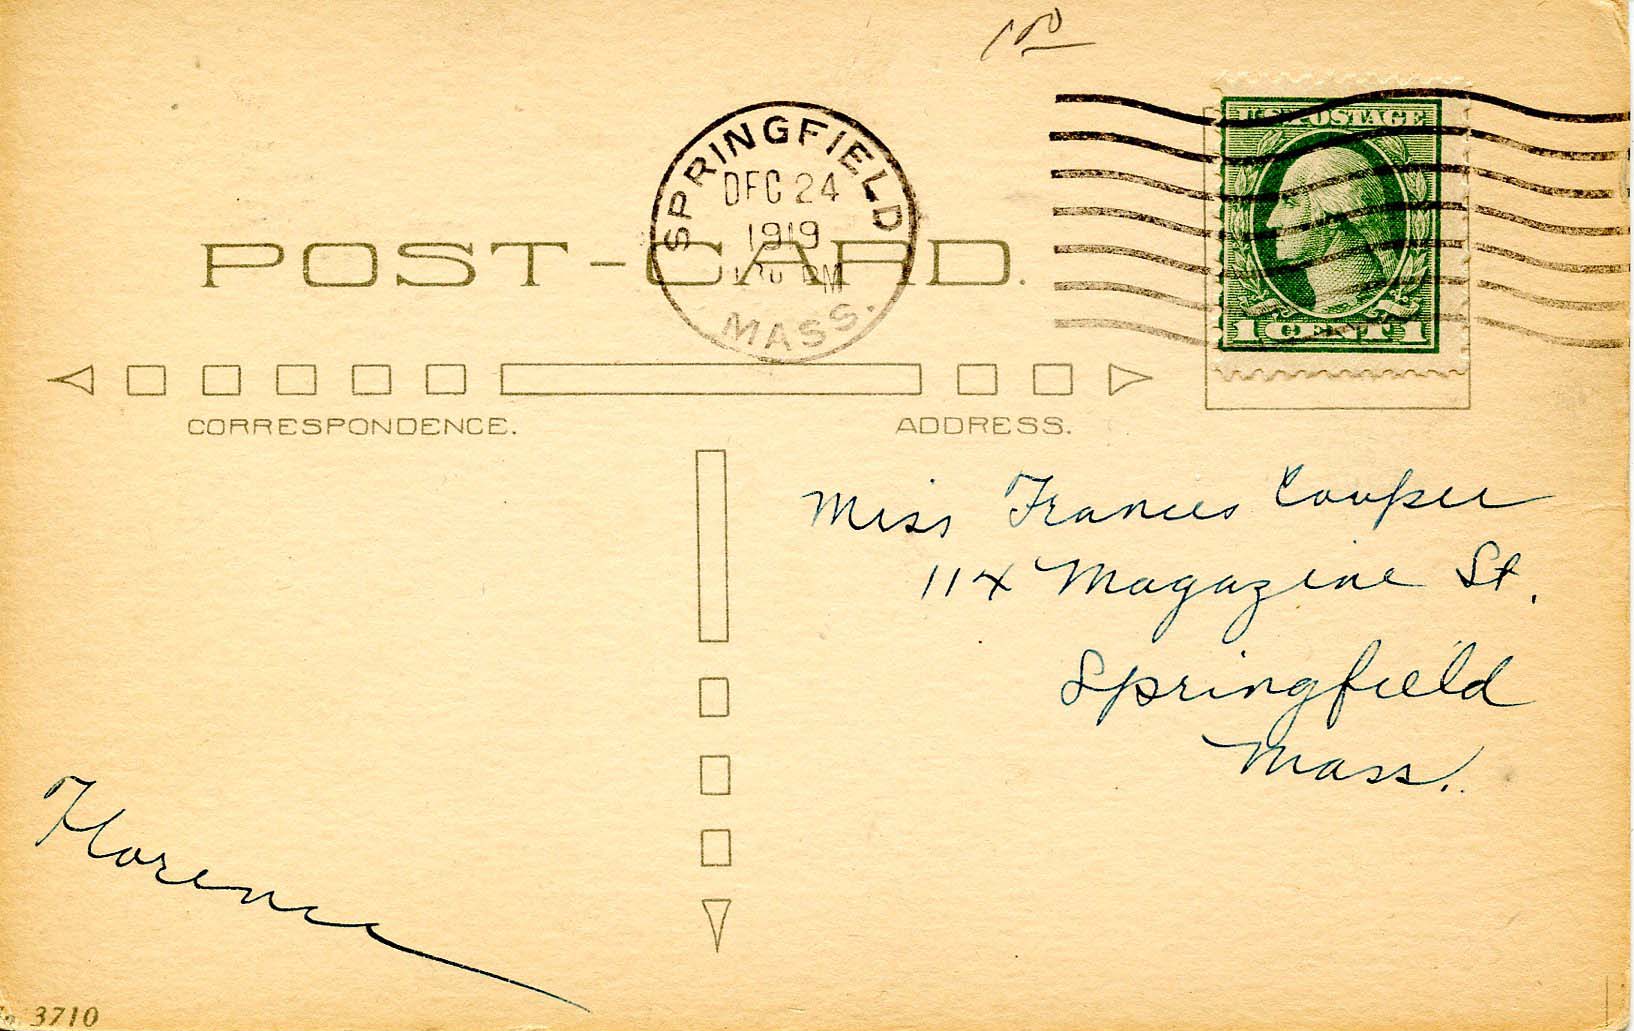 1.00
SPRINGFIELD
DEC 24
1919
PM
MASS.
U.S. POSTAGE
1 CENT 1
POST-CARD.
CORRESPONDENCE.
ADDRESS.
Miss Frances Cowper
114 Magazine St.
Springfield
Mass.
Florence
No. 3710